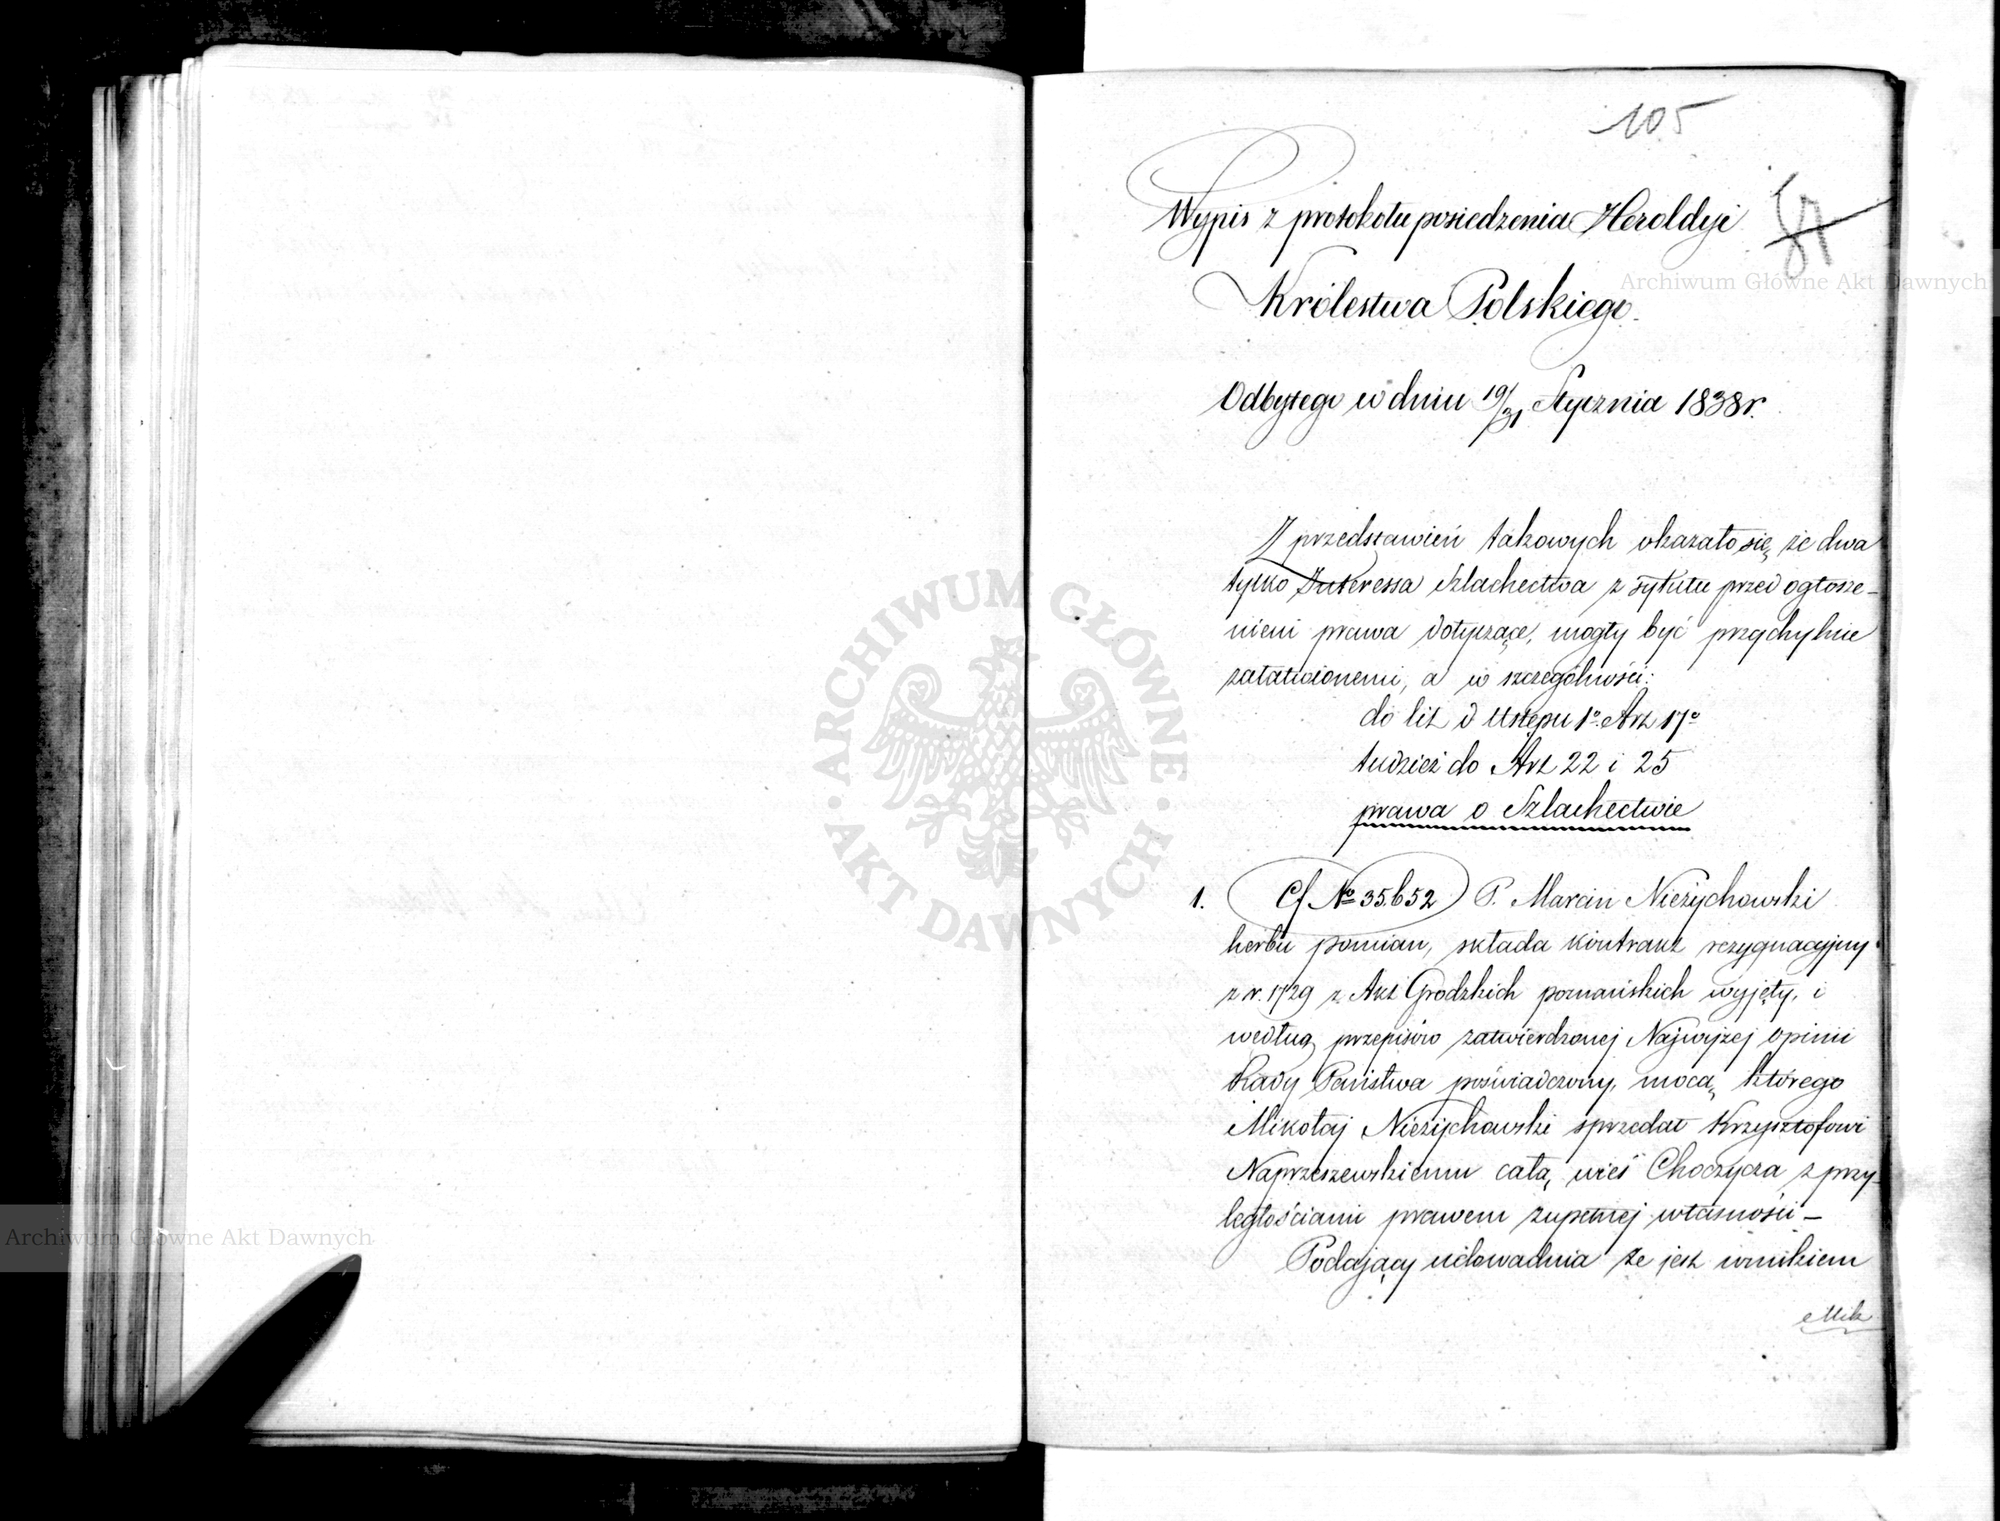 105
Wypis z protokołu posiedzenia Heroldyi
Królestwa Polskiego.
Odbytego w dniu 19/31 Stycznia 1838 r.
Z przedstawień takowych okazało się, że dwa
tylko Interessa Szlachectwa z tytułu przed ogłosze-
niem prawa dotyczące, mogły być przychylnie
załatwionemi, a w szczególności:
do lit d Ustępu 1º Art 17º
tudzież do Art 22 i 25
prawa o Szlachectwie
1. Cf No 35.652 P. Marcin Nieżychowski
herbu pomian, składa kontrakt rezygnacyjny
z r. 1729 z Akt Grodzkich poznańskich wyjęty, i
według przepisów zatwierdzonej Najwyżej opinii
Rady Państwa poświadczony, mocą którego
Mikołaj Nieżychowski sprzedał Krzysztofowi
Naprzeszewskiemu całą wieś Choczycza z przy-
ległościami prawem zupełnej własności -
Podający udowadnia że jest wnukiem
Mik
Archiwum Główne Akt Dawnych
Archiwum Główne Akt Dawnych
ARCHIWUM GŁÓWNE
AKT DAWNYCH